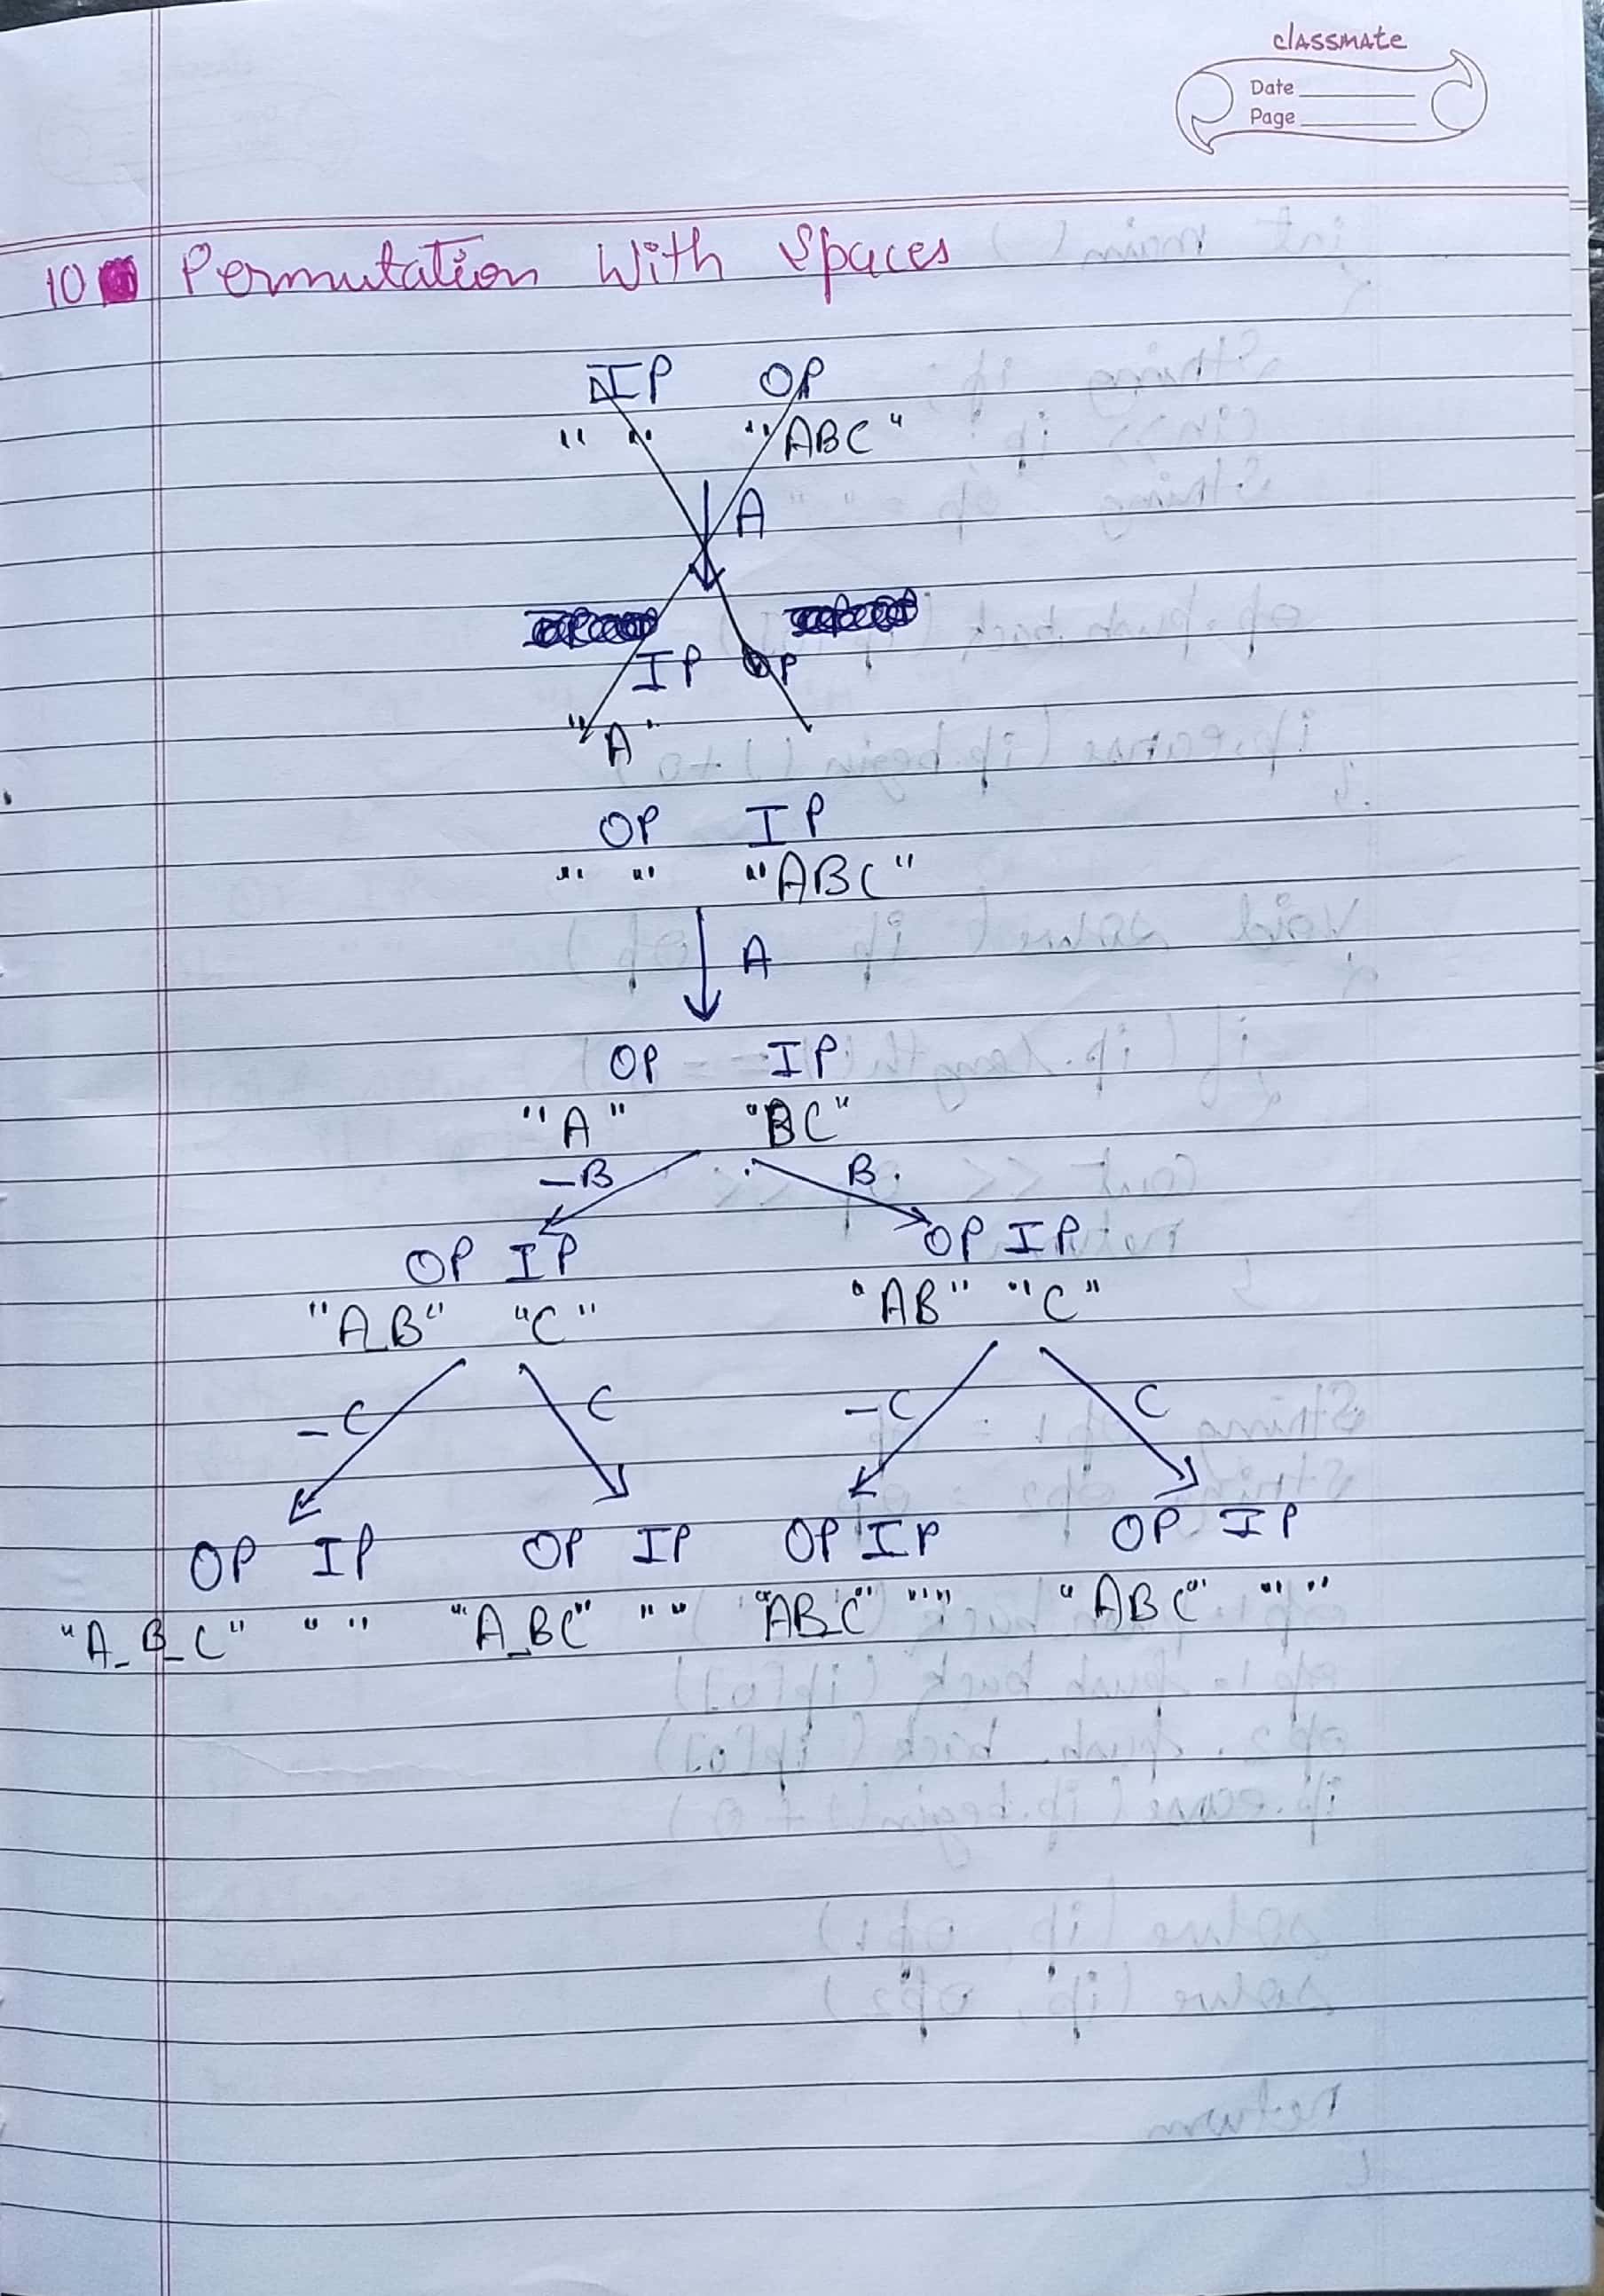 classmate
Date
Page
10 Permutation With Spaces
IP OP
" " "ABC"
A
IP OP
"A"
OP IP
" " "ABC"
A
OP IP
"A" "BC"
_B B.
OP IP OP IP
"A_B" "C" "AB" "C"
_C C _C C
OP IP OP IP OP IP OP IP
"A_B_C" " " "A_BC" " " "AB_C" " " "ABC" " "